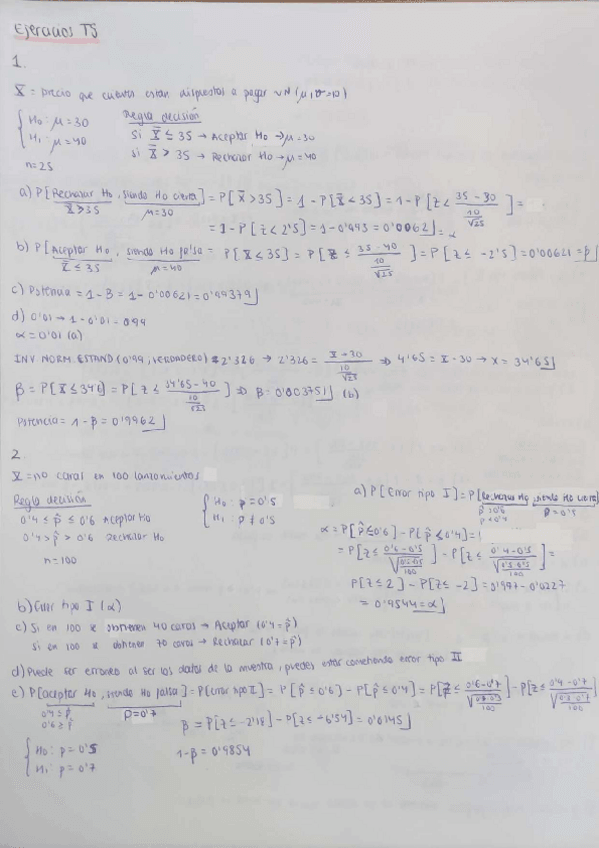 Ejercicios T5
1.
X = precio que cuentan estan dispuestos a pagar ~N(μ, σ=10)
H0: μ=30
H1: μ=40
n=25
Regla decisión
Si X̄ ≤ 35 → Aceptar H0 → μ=30
Si X̄ > 35 → Rechazar H0 → μ=40
a) P[Rechazar H0, siendo H0 cierta] = P[X̄>35] = 1-P[X̄<35] = 1-P[Z< (35-30)/(10/√25)] =
X̄>35 μ=30
= 1-P[Z<2'5] = 1-0'993 = 0'0062 = α
b) P[Aceptar H0, siendo H0 falsa = P[X̄<35] = P[Z ≤ (35-40)/(10/√25)] = P[Z ≤ -2'5] = 0'00621 = β
X̄ ≤ 35 μ=40
c) Potencia = 1-β = 1-0'00621 = 0'99379
d) 0'01 → 1-0'01 = 0'99
α=0'01 (a)
INV. NORM. ESTAND (0'99, VERDADERO) = 2'326 → 2'326 = (X-30)/(10/√25) ⇒ 4'65 = X-30 → X = 34'65
β = P[X̄≤34'6] = P[Z ≤ (34'65-40)/(10/√25)] ⇒ β = 0'00375 (b)
Potencia = 1-β = 0'9962
2.
X = no caras en 100 lanzamientos
Regla decisión
0'4 ≤ p̂ ≤ 0'6 Aceptar H0
0'4 > p̂ > 0'6 Rechazar H0
n=100
H0: p=0'5
H1: p≠0'5
a) P[Error tipo I] = P[Rechazar H0, siendo H0 cierta]
p̂>0'6 p=0'5
p<0'4
α = P[p̂≤0'6] - P[p̂≤0'4] =
= P[Z ≤ (0'6-0'5)/√(0'5·0'5/100)] - P[Z ≤ (0'4-0'5)/√(0'5·0'5/100)] =
P[Z≤2] - P[Z≤-2] = 0'977-0'0227
= 0'9544 = α
b) Error tipo I (α)
c) Si en 100 se obtienen 40 caras → Aceptar (0'4=p̂)
Si en 100 se obtienen 70 caras → Rechazar (0'7=p̂)
d) Puede ser erroneo al ser los datos de la muestra, puedes estar cometiendo error tipo II
e) P[aceptar H0, siendo H0 falsa] = P[Error tipo I] = P[p̂≤0'6] - P[p̂≤0'4] = P[Z≤ (0'6-0'7)/√(0'7·0'3/100)] - P[Z≤ (0'4-0'7)/√(0'3·0'7/100)]
0'4≤p̂ p=0'7
0'6≥p̂
β = P[Z≤-2'18] - P[Z≤-6'54] = 0'0145
H0: p=0'5
H1: p=0'7
1-β = 0'9854